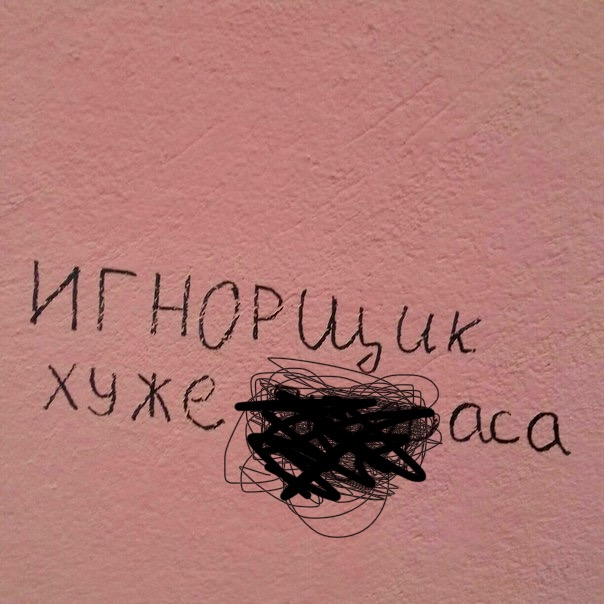 ИГНОРЩИК
хуже аса